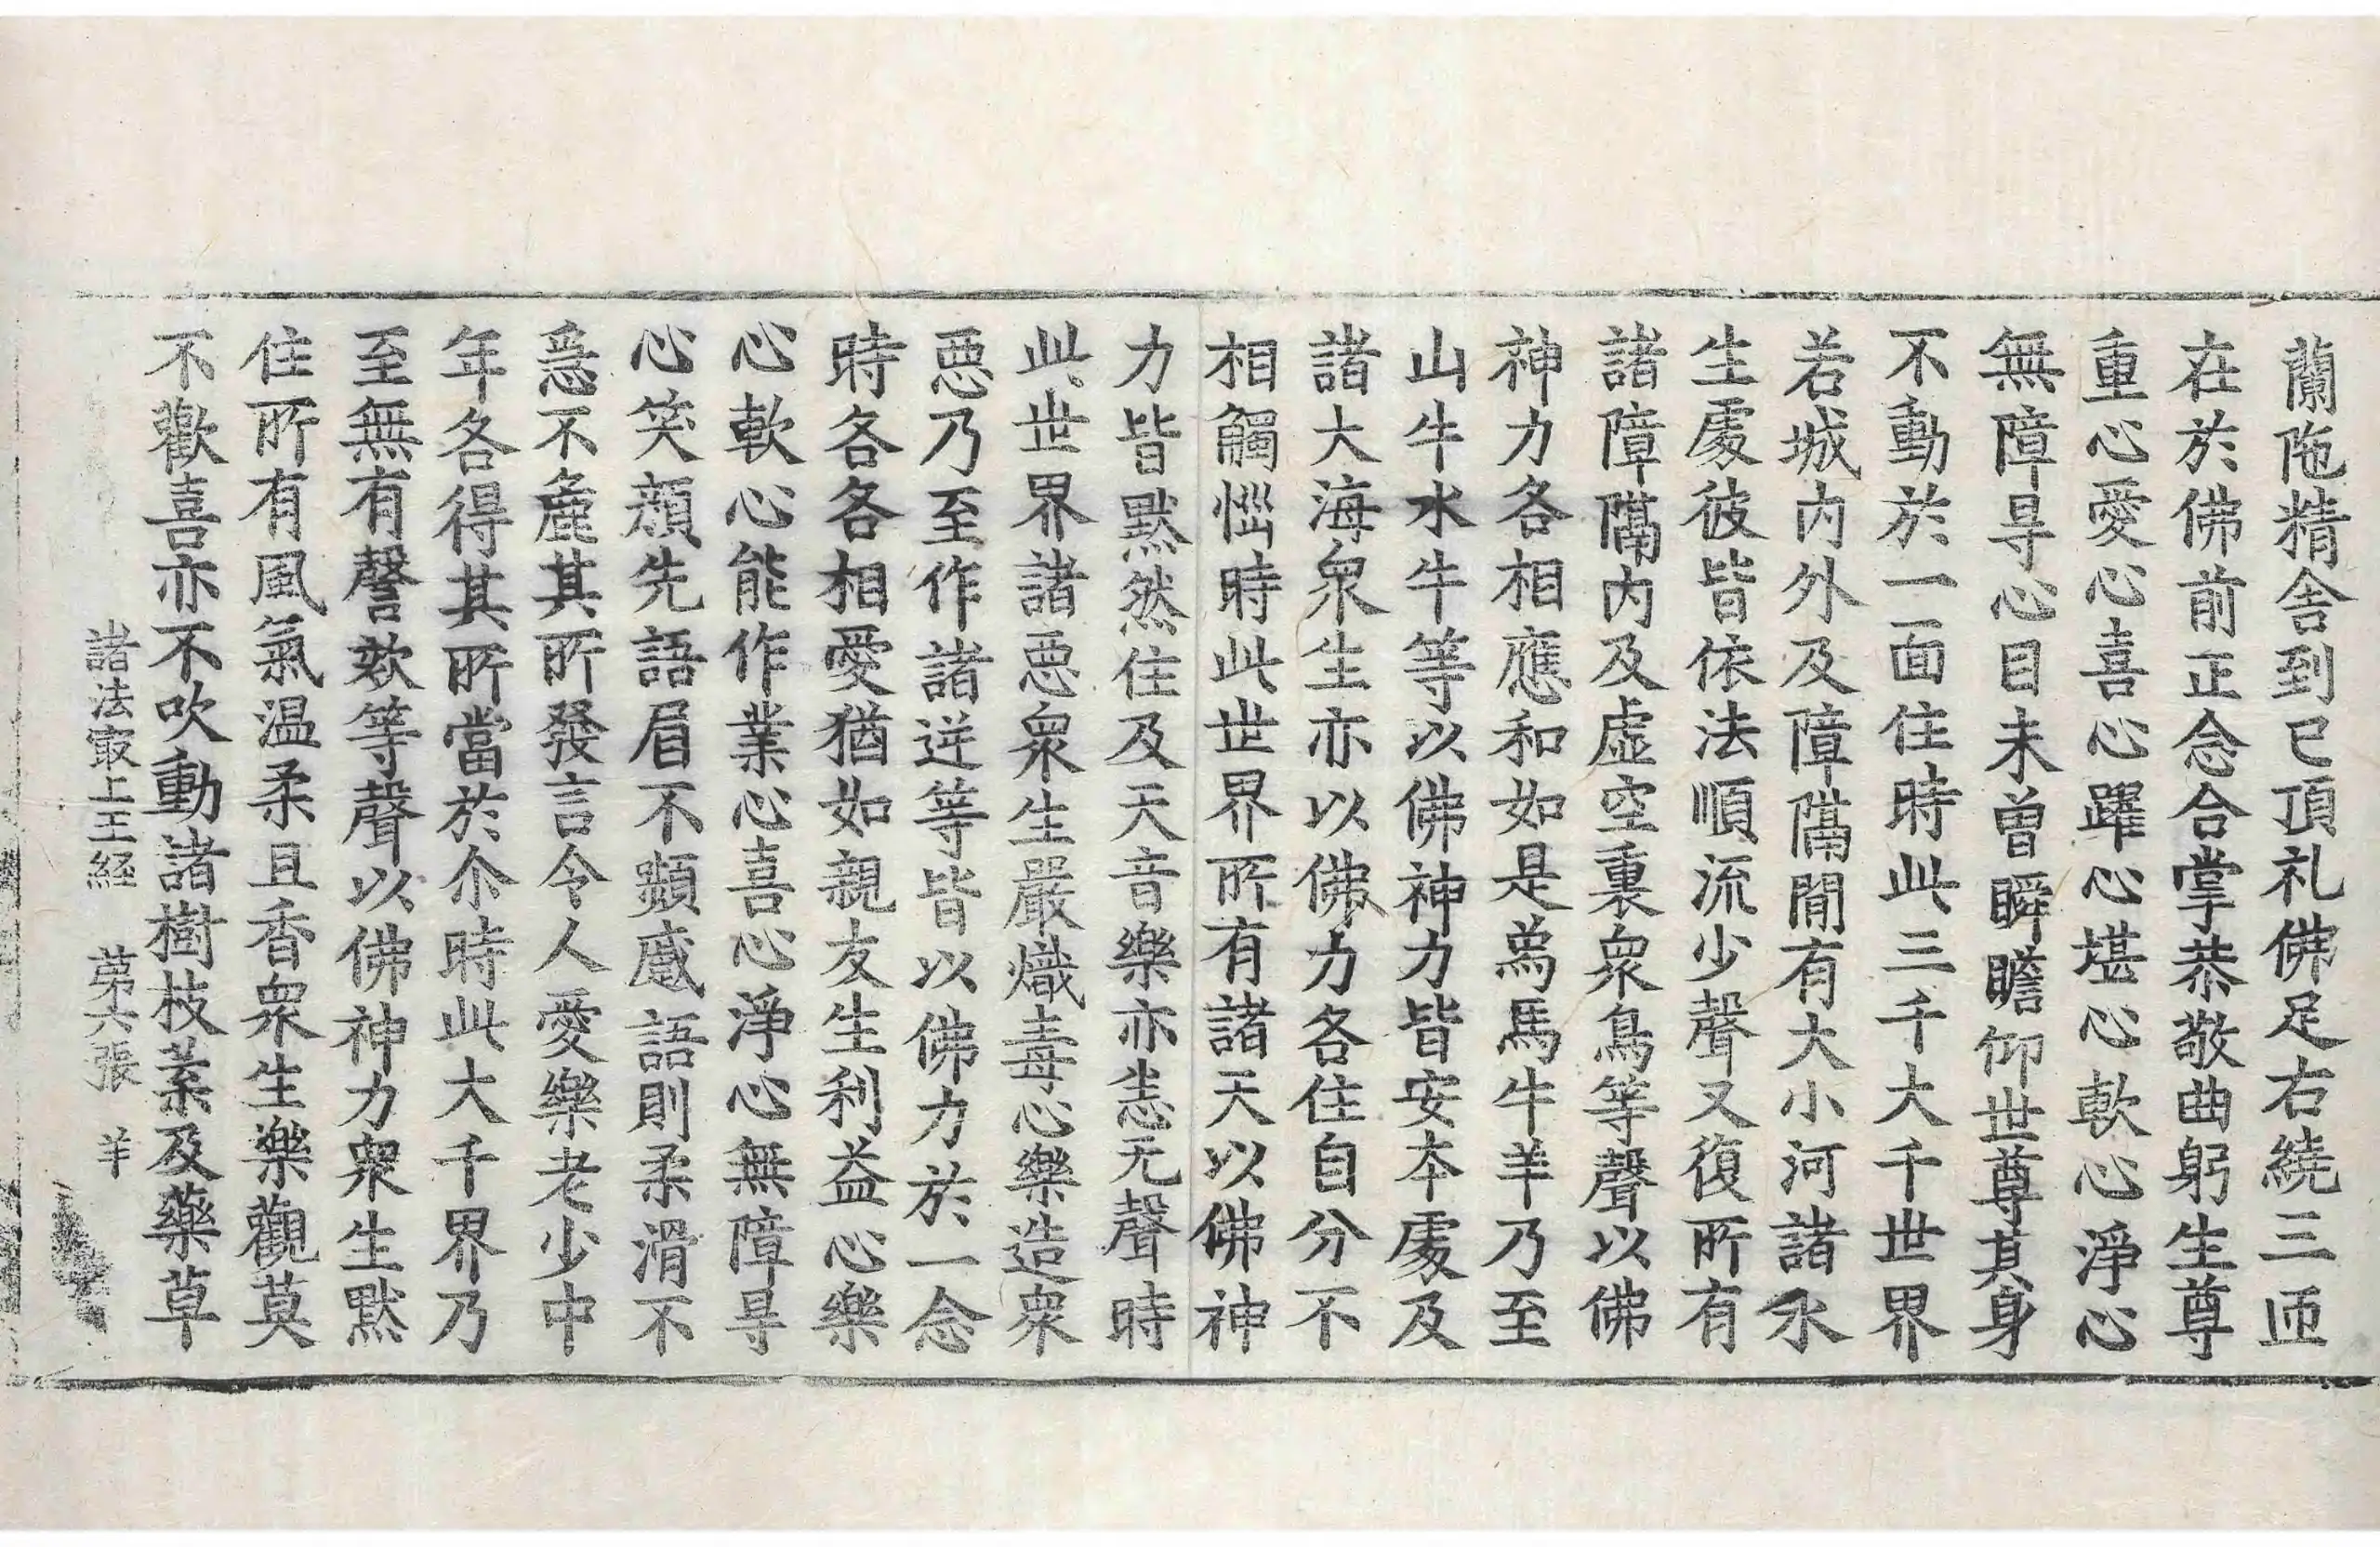 蘭陁精舎到已頂礼佛足右繞三迊
在於佛前正念合掌恭敬曲躬生尊
重心愛心喜心躍心堪心軟心淨心
無障㝵心目未曾瞬瞻仰世尊其身
不動於一面住時此三千大千世界
若城内外及障隔閒有大小河諸水
生處彼皆依法順流少聲又復所有
諸障隔内及虚空裏衆鳥等聲以佛
神力各相應和如是爲馬牛羊乃至
山牛水牛等以佛神力皆安本處及
諸大海衆生亦以佛力各住自分不
相觸惱時此世界所有諸天以佛神
力皆默然住及天音樂亦恙无聲時
此世界諸惡衆生嚴熾毒心樂造衆
惡乃至作諸逆等皆以佛力於一念
時各各相愛猶如親友生利益心樂
心軟心能作業心喜心淨心無障㝵
心笑顔先語眉不顰蹙語則柔滑不
急不麁其所發言令人愛樂老少中
年各得其所當於尒時此大千界乃
至無有謦欬等聲以佛神力衆生默
住所有風氣温柔且香衆生樂觀莫
不歡喜亦不吹動諸樹枝葉及藥草
諸法㝡上王経　苐六張　羊